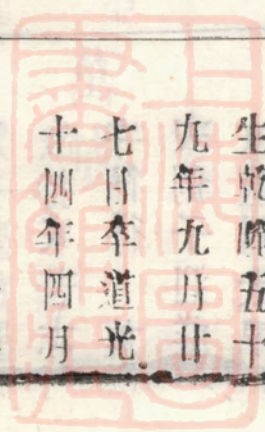 生乾隆五十
九年九月廿
七日卒道光
十四年四月